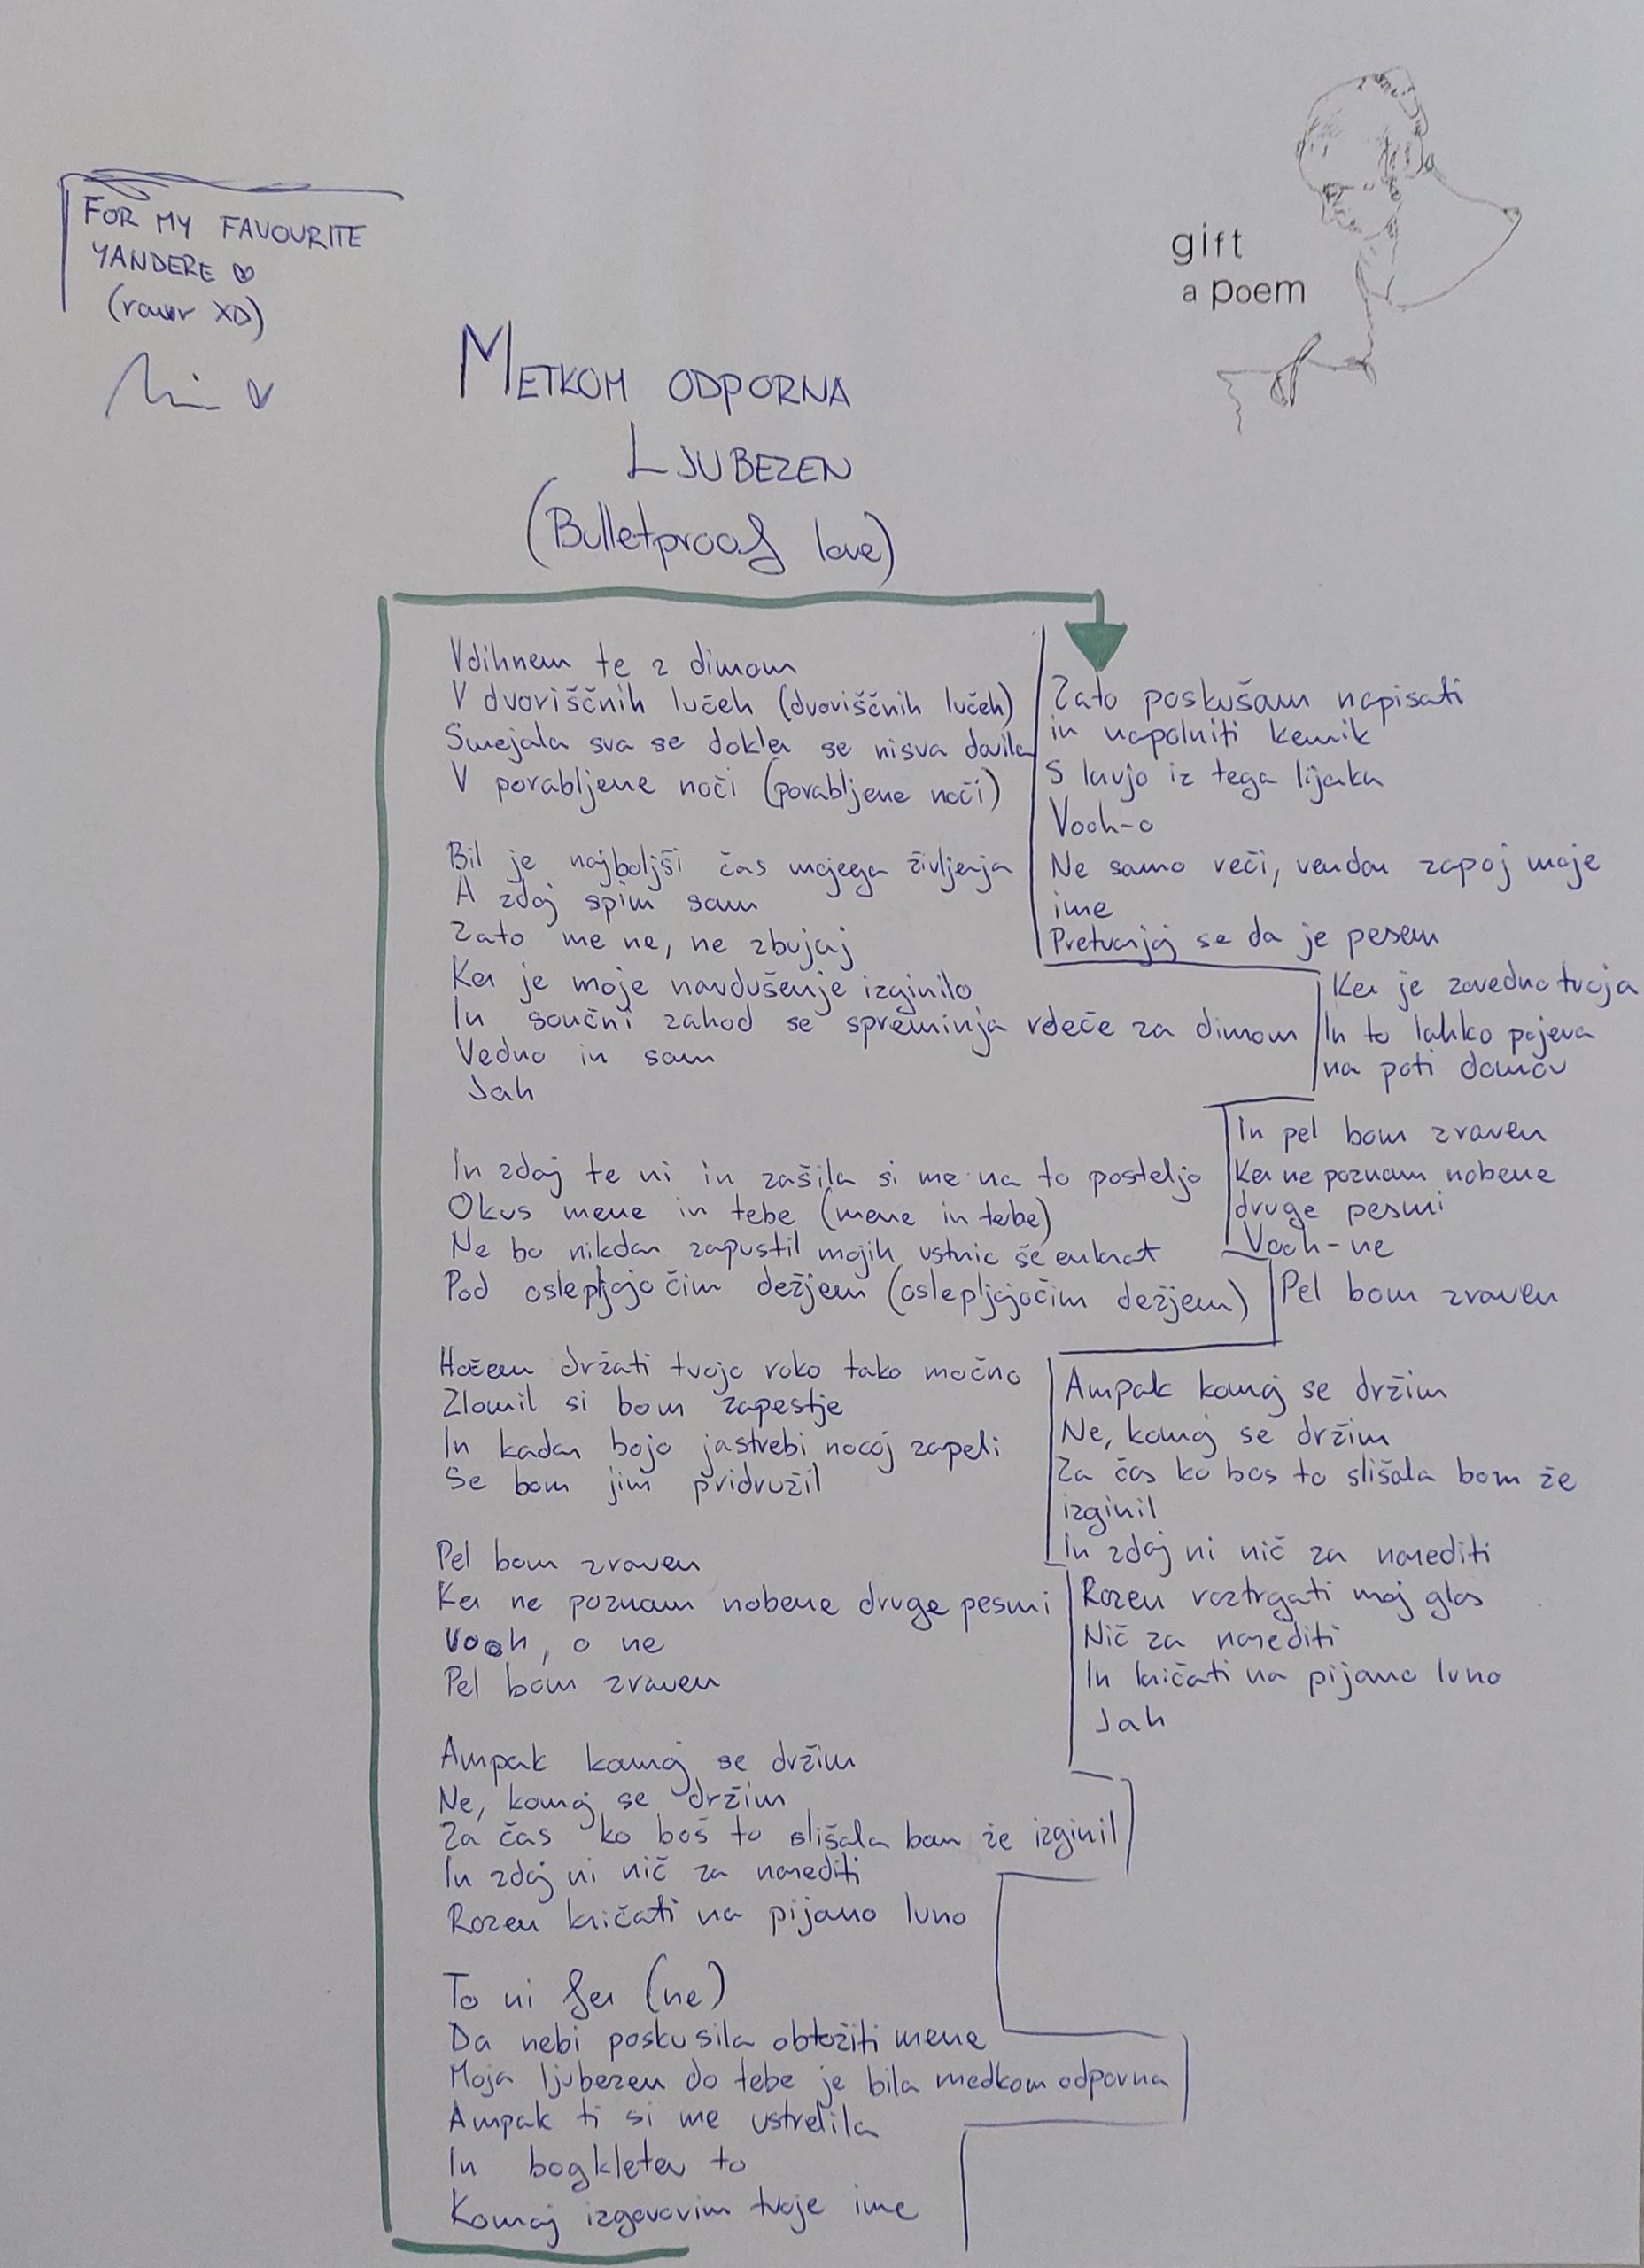 FOR MY FAVOURITE
YANDERE
(rawr XD)
gift
a poem
METKOM ODPORNA
LJUBEZEN
(Bulletproof love)
Vdihnem te z dimom
V dvoriščnih lučeh (dvoriščnih lučeh)
Smejala sva se dokler se nisva davila
V porabljene noči (porabljene noči)
Bil je najboljši čas mojega življenja
A zdaj spim sam
Zato me ne, ne zbujaj
Ker je moje navdušenje izginilo
In sončni zahod se spreminja rdeče za dimom
Vedno in sam
Jah
In zdaj te ni in zašila si me na to posteljo
Okus mene in tebe (mene in tebe)
Ne bo nikdar zapustil mojih ustnic še enkrat
Pod oslepljajočim dežjem (oslepljajočim dežjem)
Hočem držati tvojo roko tako močno
Zlomil si bom zapestje
In kadar bojo jastrebi nocoj zapeli
Se bom jim pridružil
Pel bom zraven
Ker ne poznam nobene druge pesmi
Vooh, o ne
Pel bom zraven
Ampak komaj se držim
Ne, komaj se držim
Za čas ko boš to slišala bom že izginil
In zdaj ni nič za narediti
Razen kričati na pijano luno
To ni fer (ne)
Da nebi poskusila obtožiti mene
Moja ljubezen do tebe je bila medkom odporna
Ampak ti si me ustrelila
In bogkleter to
Komaj izgovorim tvoje ime
Zato poskušam napisati
in napolniti kemik
S krvjo iz tega lijaka
Vooh-o
Ne samo reči, vendar zapoj moje
ime
Pretvarjaj se da je pesem
Ker je zavedno tvoja
In to lahko pojeva
na poti domov
In pel bom zraven
Ker ne poznam nobene
druge pesmi
Vooh-ne
Pel bom zraven
Ampak komaj se držim
Ne, komaj se držim
Za čas ko bos to slišala bom že
izginil
In zdaj ni nič za narediti
Razen raztrgati moj glas
Nič za narediti
In kričati na pijano luno
Jah